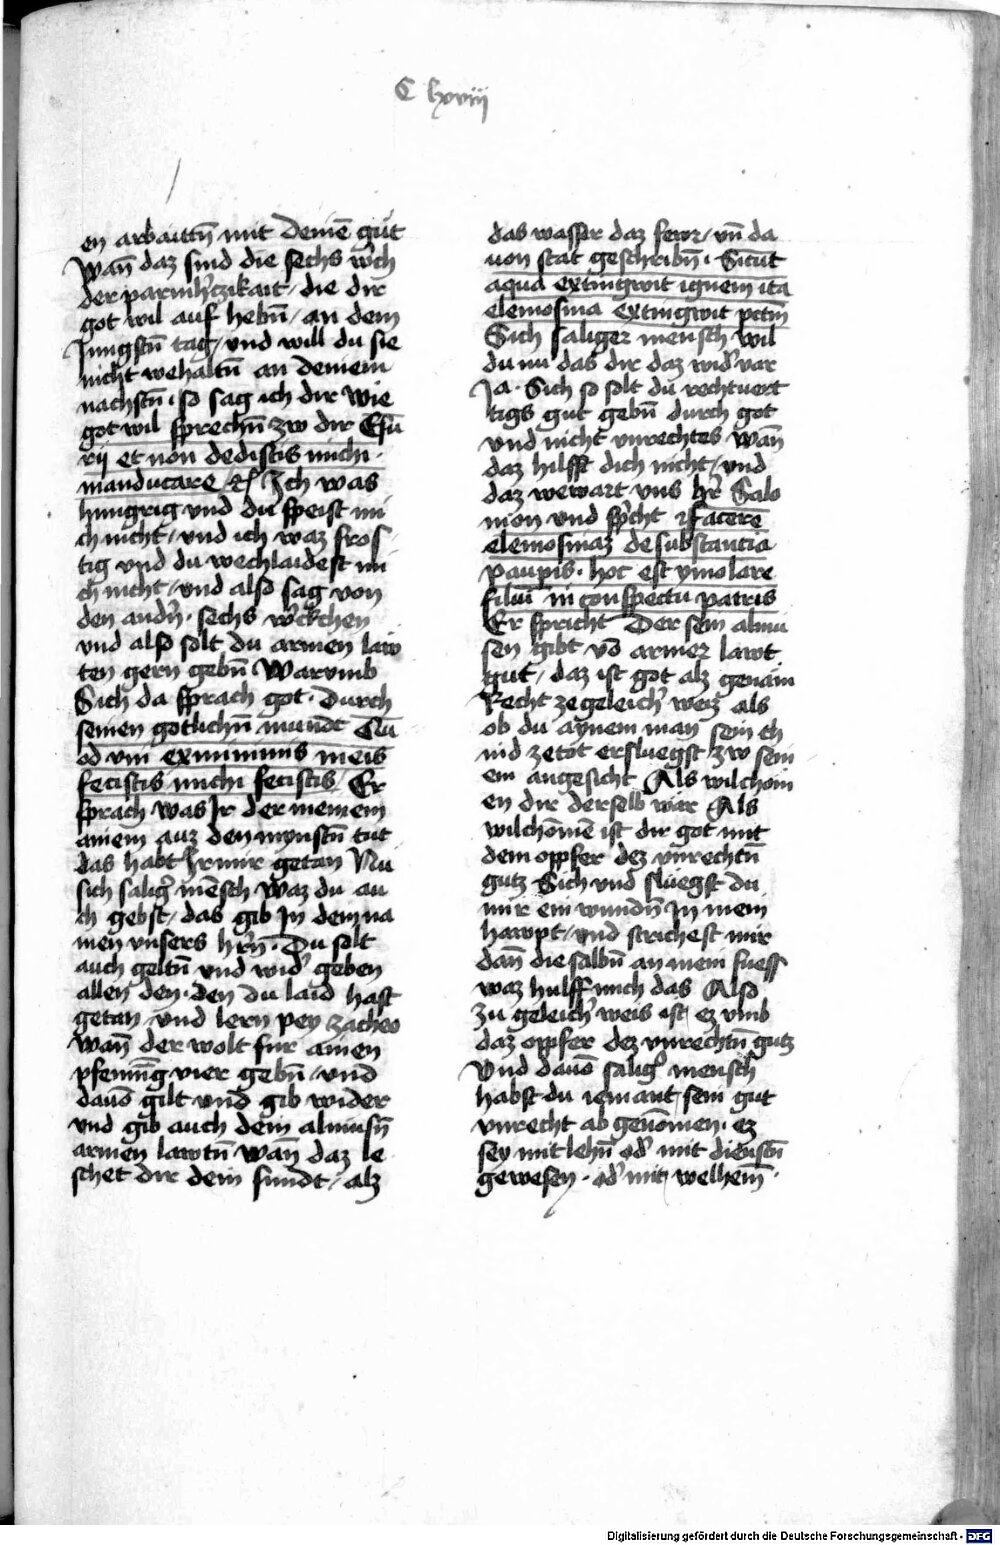 C lxviij
en arbaittn̄ mit deinē gůt
Wan̄ daz sind die sechs w̓ch
der parmh̓czikait / die dir
got wil auf hebn̄ / an dem
Jungstn̄ tag / vnd will du sie
nicht wehaltn̄ an deinem
nachstn̄ · so sag ich dir wie
got wil sprechn̄ zw dir Esu
rij et non dedistis michi ·
manducare / etc̄ Ich was
hungrig vnd du speist mi
ch nicht / vnd ich waz fros
tig vnd du wechlaidest mi
ch nicht / vnd also sag von
den andn̓ · sechs w̓ckchen
vnd also solt du armen law
ten gern gebn̄ Warumb
Sich da sprach got · durch
seinen gotlichn̄ mundt Qu
od vni ex minimis meis
fecistis michi fecistis / Er
sprach was Jr der meinem
ainem auz den mynstn̄ tut
das habt Jr mir getan Nu
sich salig̓ mēsch waz du au
ch gebst / das gib Jn dem na
men vnsers hr̓n̄ · Du solt
auch geltn̄ vnd wid̓ geben
allen den · den du laid hast
getan vnd lern pey zacheo
wan̄ der wolt fur ainen
pfennīg vier gebn̄ / vnd
dauō gilt vnd gib wider
vnd gib auch dein almusn̄
armen lawtn̄ wan̄ daz le
schet dir dein sundt / alz
das wasser daz fewr / vn̄ da
uon stat geschribn̄ · Sicut
aqua extingwit ignem ita
elemosina extingwit pctm̄
Sich saliger mensch wil
du nu das dir daz wid̓ var
Ja · Sich so solt du rechtuert
tigs gut gebn̄ durch got
vnd nicht vnrechtes wan̄
daz hilfft dich nicht / vnd
daz wewart vns hr̓ Salo
mon vnd sp̓cht Facere
elemosinaz de substancia
paup̄is · hoc est ymolare
filiū in conspectu patris
Er spricht Der sein almu
sen gibt vō armer lawt
gut / daz ist got alz genäm
Recht ze geleich̓ weiz als
ob du aynem man sein ch
nid ze tot ersluegst zw sein
em angesicht Als wilchöm
en dir derselb wär Als
wilchömē ist dir got mit
dem opfer dez vnrechtn̄
gutz Sich vnd sluegst du
mir ein wundn̄ Jn mein
hawpt / vnd strichest mir
dan̄ die salbn̄ an mein fuess
waz hulff mich das Also
zu geleich̓ weis ist ez vmb
daz opfer dez vnrechtn̄ gutz
Vnd dauō salig̓ mensch
habst du iemant sein gut
vnrecht ab genōmen · ez
sey mit lehn̄ od̓ mit dienstn̄
gewesen · od̓ mit welhem̄ ·
Digitalisierung gefördert durch die Deutsche Forschungsgemeinschaft - DFG